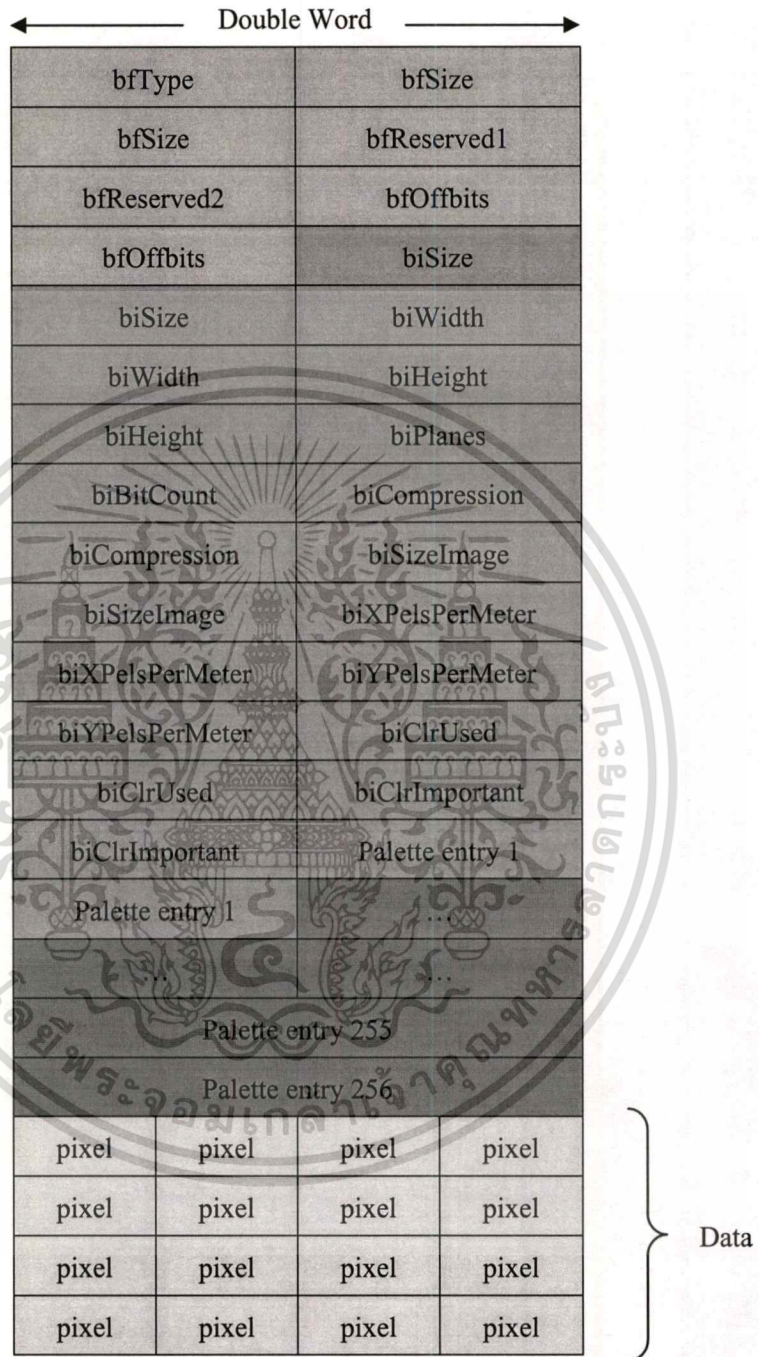 Double Word
bfType bfSize
bfSize bfReserved1
bfReserved2 bfOffbits
bfOffbits biSize
biSize biWidth
biWidth biHeight
biHeight biPlanes
biBitCount biCompression
biCompression biSizeImage
biSizeImage biXPelsPerMeter
biXPelsPerMeter biYPelsPerMeter
biYPelsPerMeter biClrUsed
biClrUsed biClrImportant
biClrImportant Palette entry 1
Palette entry 1 ...
... ...
Palette entry 255
Palette entry 256
pixel pixel pixel pixel
pixel pixel pixel pixel
pixel pixel pixel pixel
pixel pixel pixel pixel
Data
พระจอมเกล้าเจ้าคุณทหาร